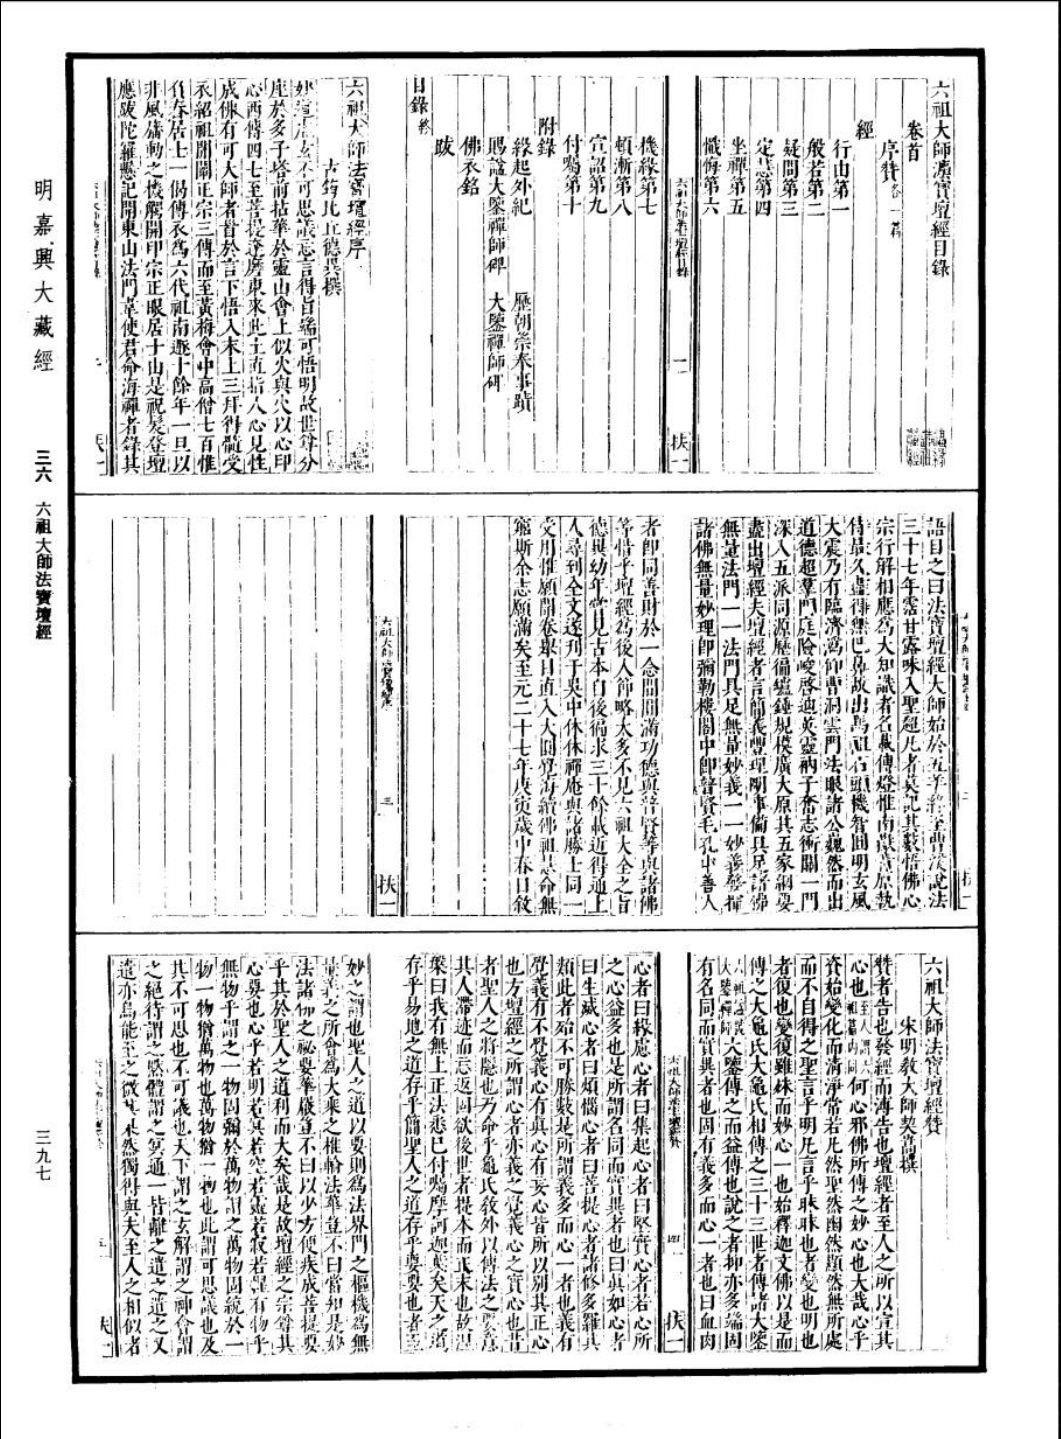 六祖大師法寶壇經目錄
卷首
序贊 各一篇
經
行由第一
般若第二
疑問第三
定慧第四
坐禪第五
懺悔第六
六祖大師法寶壇經目錄 一 扶一
機緣第七
頓漸第八
宣詔第九
付囑第十
附錄
緣起外紀 歷朝崇奉事蹟
賜諡大鑒禪師碑 大鑒禪師碑
佛衣銘
跋
目錄終
六祖大師法寶壇經序
古筠比丘德異撰
妙道虛玄不可思議忘言得旨端可悟明故世尊分
座於多子塔前拈華於靈山會上似火與火以心印
心西傳四七至菩提達摩東來此土直指人心見性
成佛有可大師者首於言下悟入末上三拜得髓受
衣紹祖開闡正宗三傳而至黃梅會中高僧七百惟
負舂居士一偈傳衣為六代祖南遯十餘年一旦以
非風旛動之機觸開印宗正眼居士由是祝髮登壇
應跋陀羅懸記開東山法門韋使君命海禪者錄其
語目之曰法寶壇經大師始於五羊終至曹溪說法
三十七年霑甘露味入聖超凡者莫記其數悟佛心
宗行解相應為大知識者名載傳燈惟南嶽青原執
侍最久盡得無巴鼻故出馬祖石頭機智圓明玄風
大震乃有臨濟溈仰曹洞雲門法眼諸公巍然而出
道德超羣門庭險峻啓迪英靈衲子奮志衝關一門
深入五派同源歷徧罏錘規模廣大原其五家綱要
盡出壇經夫壇經者言簡義豐理明事備具足諸佛
無量法門一一法門具足無量妙義一一妙義發揮
諸佛無量妙理即彌勒樓閣中即普賢毛孔中善入
者即同善財於一念間圓滿功德與普賢等與諸佛
等惜乎壇經為後人節略太多不見六祖大全之旨
德異幼年嘗見古本自後徧求三十餘載近得通上
人尋到全文遂刊于吳中休休禪庵與諸勝士同一
受用惟願開卷舉目直入大圓覺海續佛祖慧命無
窮斯余志願滿矣至元二十七年庚寅歲中春日敘
三 扶一
六祖大師法寶壇經贊
宋明敎大師契嵩撰
贊者告也發經而溥告也壇經者至人之所以宣其
心也何心邪佛所傳之妙心也大哉心乎
資始變化而清淨常若凡然聖然幽然顯然無所處
而不自得之聖言乎明凡言乎昧昧也者變也明也
者復也變復雖殊而妙心一也始釋迦文佛以是而
傳之大龜氏大龜氏相傳之三十三世者傳諸大鑒
大鑒傳之而益傳也說之者抑亦多端固
有名同而實異者也固有義多而心一者也曰血肉
四 扶一
心者曰緣慮心者曰集起心者曰堅實心者若心所
之心益多也是所謂名同而實異者也曰眞如心者
曰生滅心者曰煩惱心者曰菩提心者諸修多羅其
類此者殆不可勝數是所謂義多而心一者也義有
覺義有不覺義心有眞心有妄心皆所以別其正心
也方壇經之所謂心者亦義之覺義心之實心也昔
者聖人之將隱也乃命乎龜氏敎外以傳法之要意
其人滯迹而忘返固欲後世者提本而正末也故涅
槃曰我有無上正法悉已付囑摩訶迦葉矣天之道
存乎易地之道存乎簡聖人之道存乎要要也者至
妙之謂也聖人之道以要則為法界門之樞機為無
量義之所會為大乘之椎輪法華豈不曰當知是妙
法諸佛之祕要華嚴豈不曰以少方便疾成菩提要
乎其於聖人之道利而大矣哉是故壇經之宗尊其
心要也心乎若明若冥若空若靈若寂若惺有物乎
無物乎謂之一物固彌於萬物謂之萬物固統於一
物一物猶萬物也萬物猶一物也此謂可思議也及
其不可思也不可議也天下謂之玄解謂之神會謂
之絕待謂之默體謂之冥通一皆離之遣之遣之又
遣亦烏能至之微其果然獨得與夫至人之相似者
五 扶一
明嘉興大藏經 三六 六祖大師法寶壇經 三九七